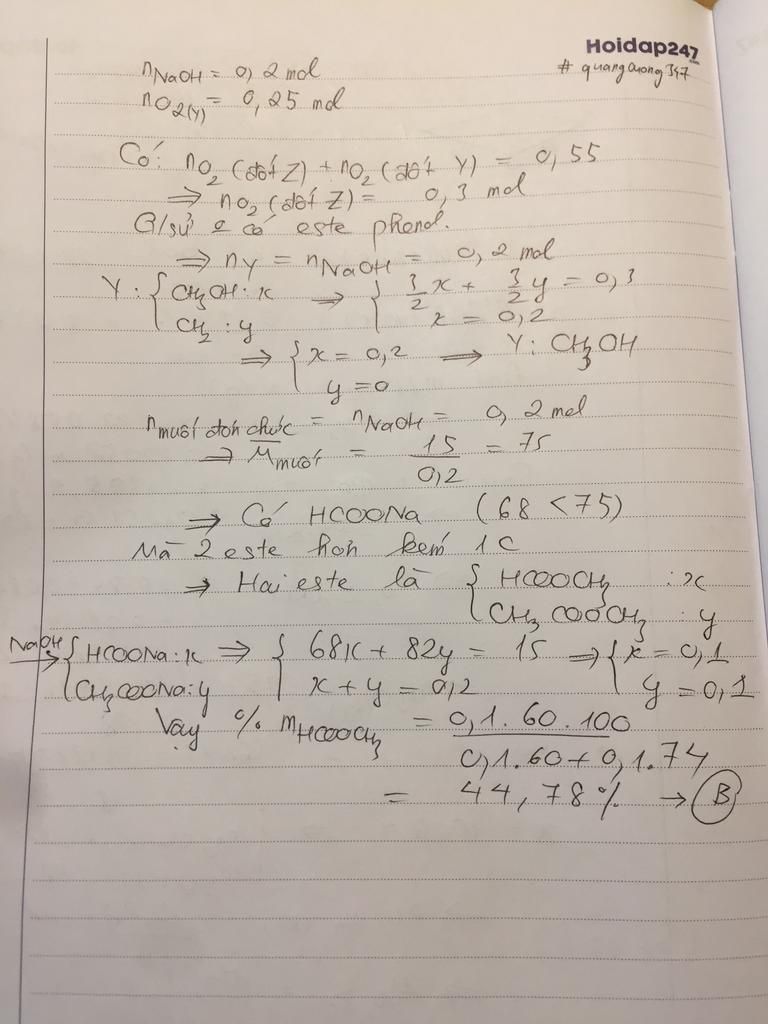 Hoidap247
.com
# quangcuong347
nNaOH = 0,2 mol
nO2(Y) = 0,25 mol
Có: nO2 (đốt Z) + nO2 (đốt Y) = 0,55
⇒ nO2 (đốt Z) = 0,3 mol
G/sử có este phenol.
⇒ nY = nNaOH = 0,2 mol
Y: { CH3OH: x ⇒ { 3/2 x + 3/2 y = 0,3
CH2 : y x = 0,2
⇒ { x = 0,2 ⟶ Y: CH3OH
y = 0
nmuối đơn chức = nNaOH = 0,2 mol
⇒ M̅muối = 15/0,2 = 75
⇒ Có HCOONa (68 < 75)
Mà 2 este hơn kém 1C
⇒ Hai este là { HCOOCH3 : x
CH3COOCH3 : y
NaOH → { HCOONa: x ⇒ { 68x + 82y = 15 ⇒ { x = 0,1
CH3COONa: y x + y = 0,2 y = 0,1
Vậy % mHCOOCH3 = 0,1.60.100 / 0,1.60 + 0,1.74
= 44,78% → B